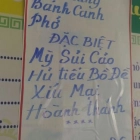 Bánh Canh
Phở
ĐẶC BIỆT
Mỳ Sủi Cảo
Hủ tiếu Bò Dê
Xíu Mại
Hoành Thánh